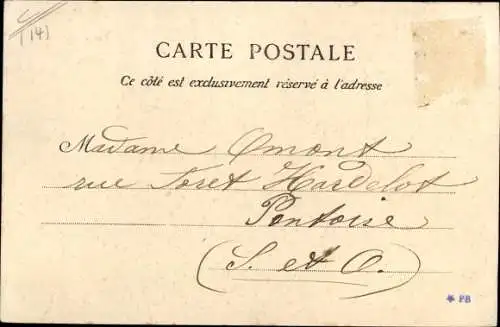 (14)
CARTE POSTALE
Ce côté est exclusivement réservé à l'adresse
Madame Omont
rue Foret Hardelot
Pontoise
(S. et O.)
* PB